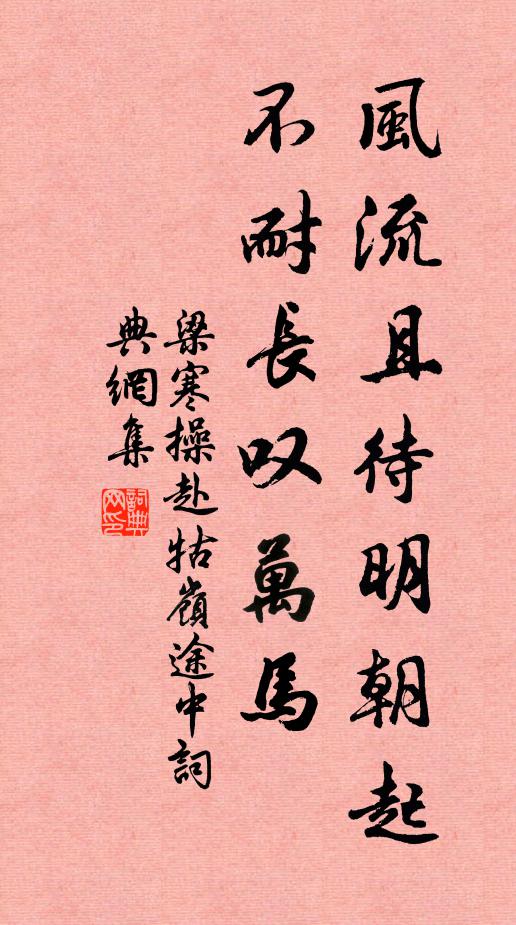 風流且待明朝起
不耐長叹萬馬
梁寒操赴牯嶺途中詞
典網集
詞典
网印